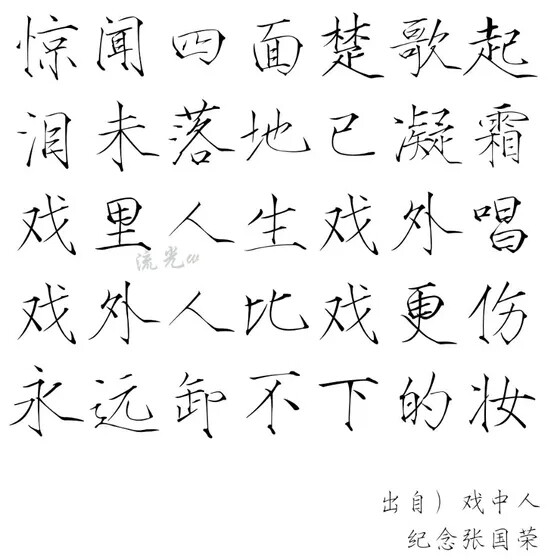 惊闻四面楚歌起
泪未落地已凝霜
戏里人生戏外唱
流光
戏外人比戏更伤
永远卸不下的妆
出自）戏中人
纪念张国荣